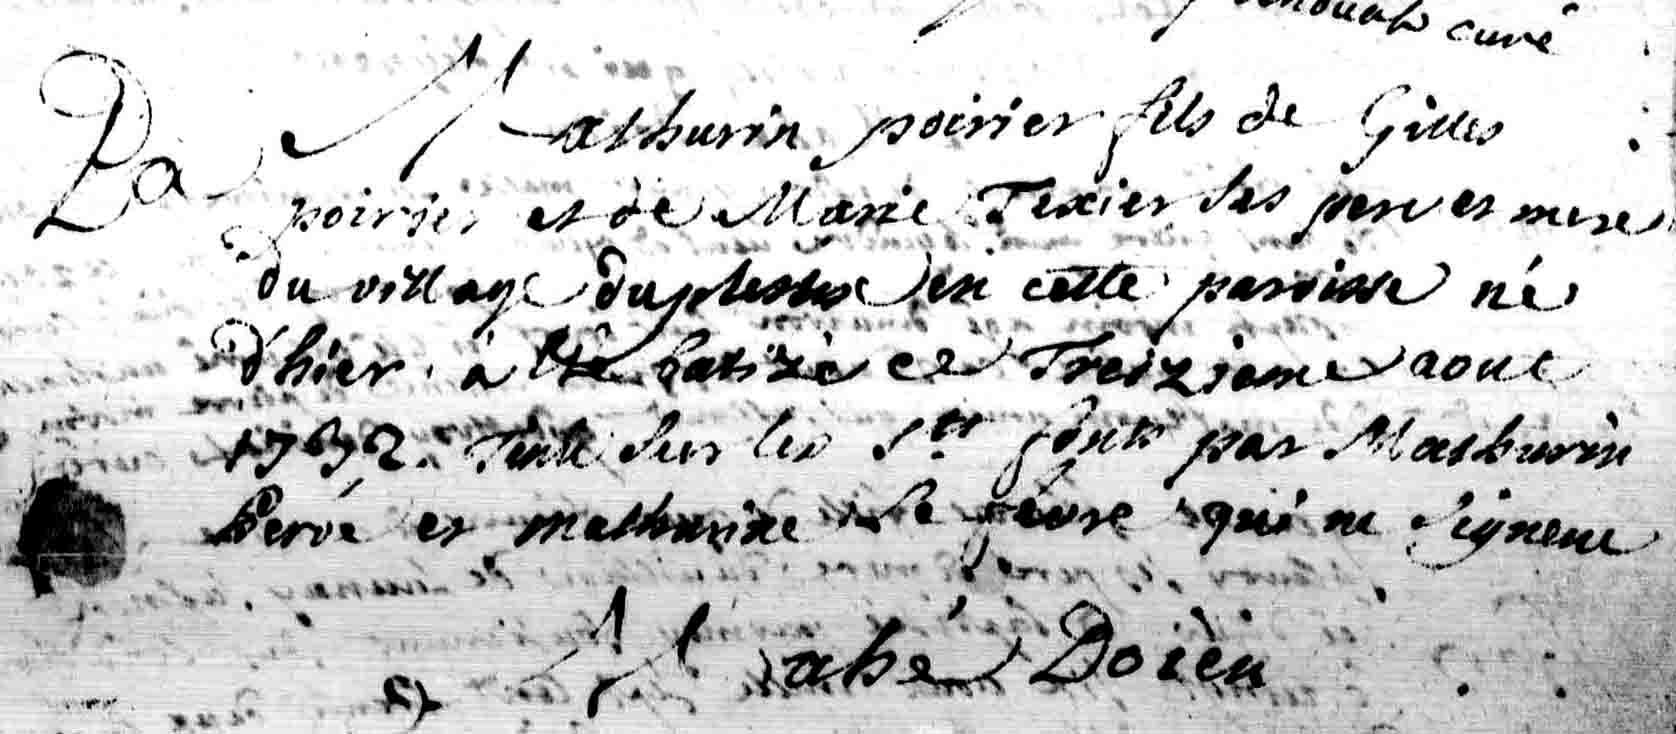 curé
Ba Mathurin poirier fils de Gilles
poirier et de Marie Texier ses pere et mere
du village duplessix en cette paroisse né
d'hier à été batizé ce Treizieme aout
1732. Tenu sur les Sts fonts par Mathurin
et mathurine Le fèvre qui ne signent
Mahé Doïen